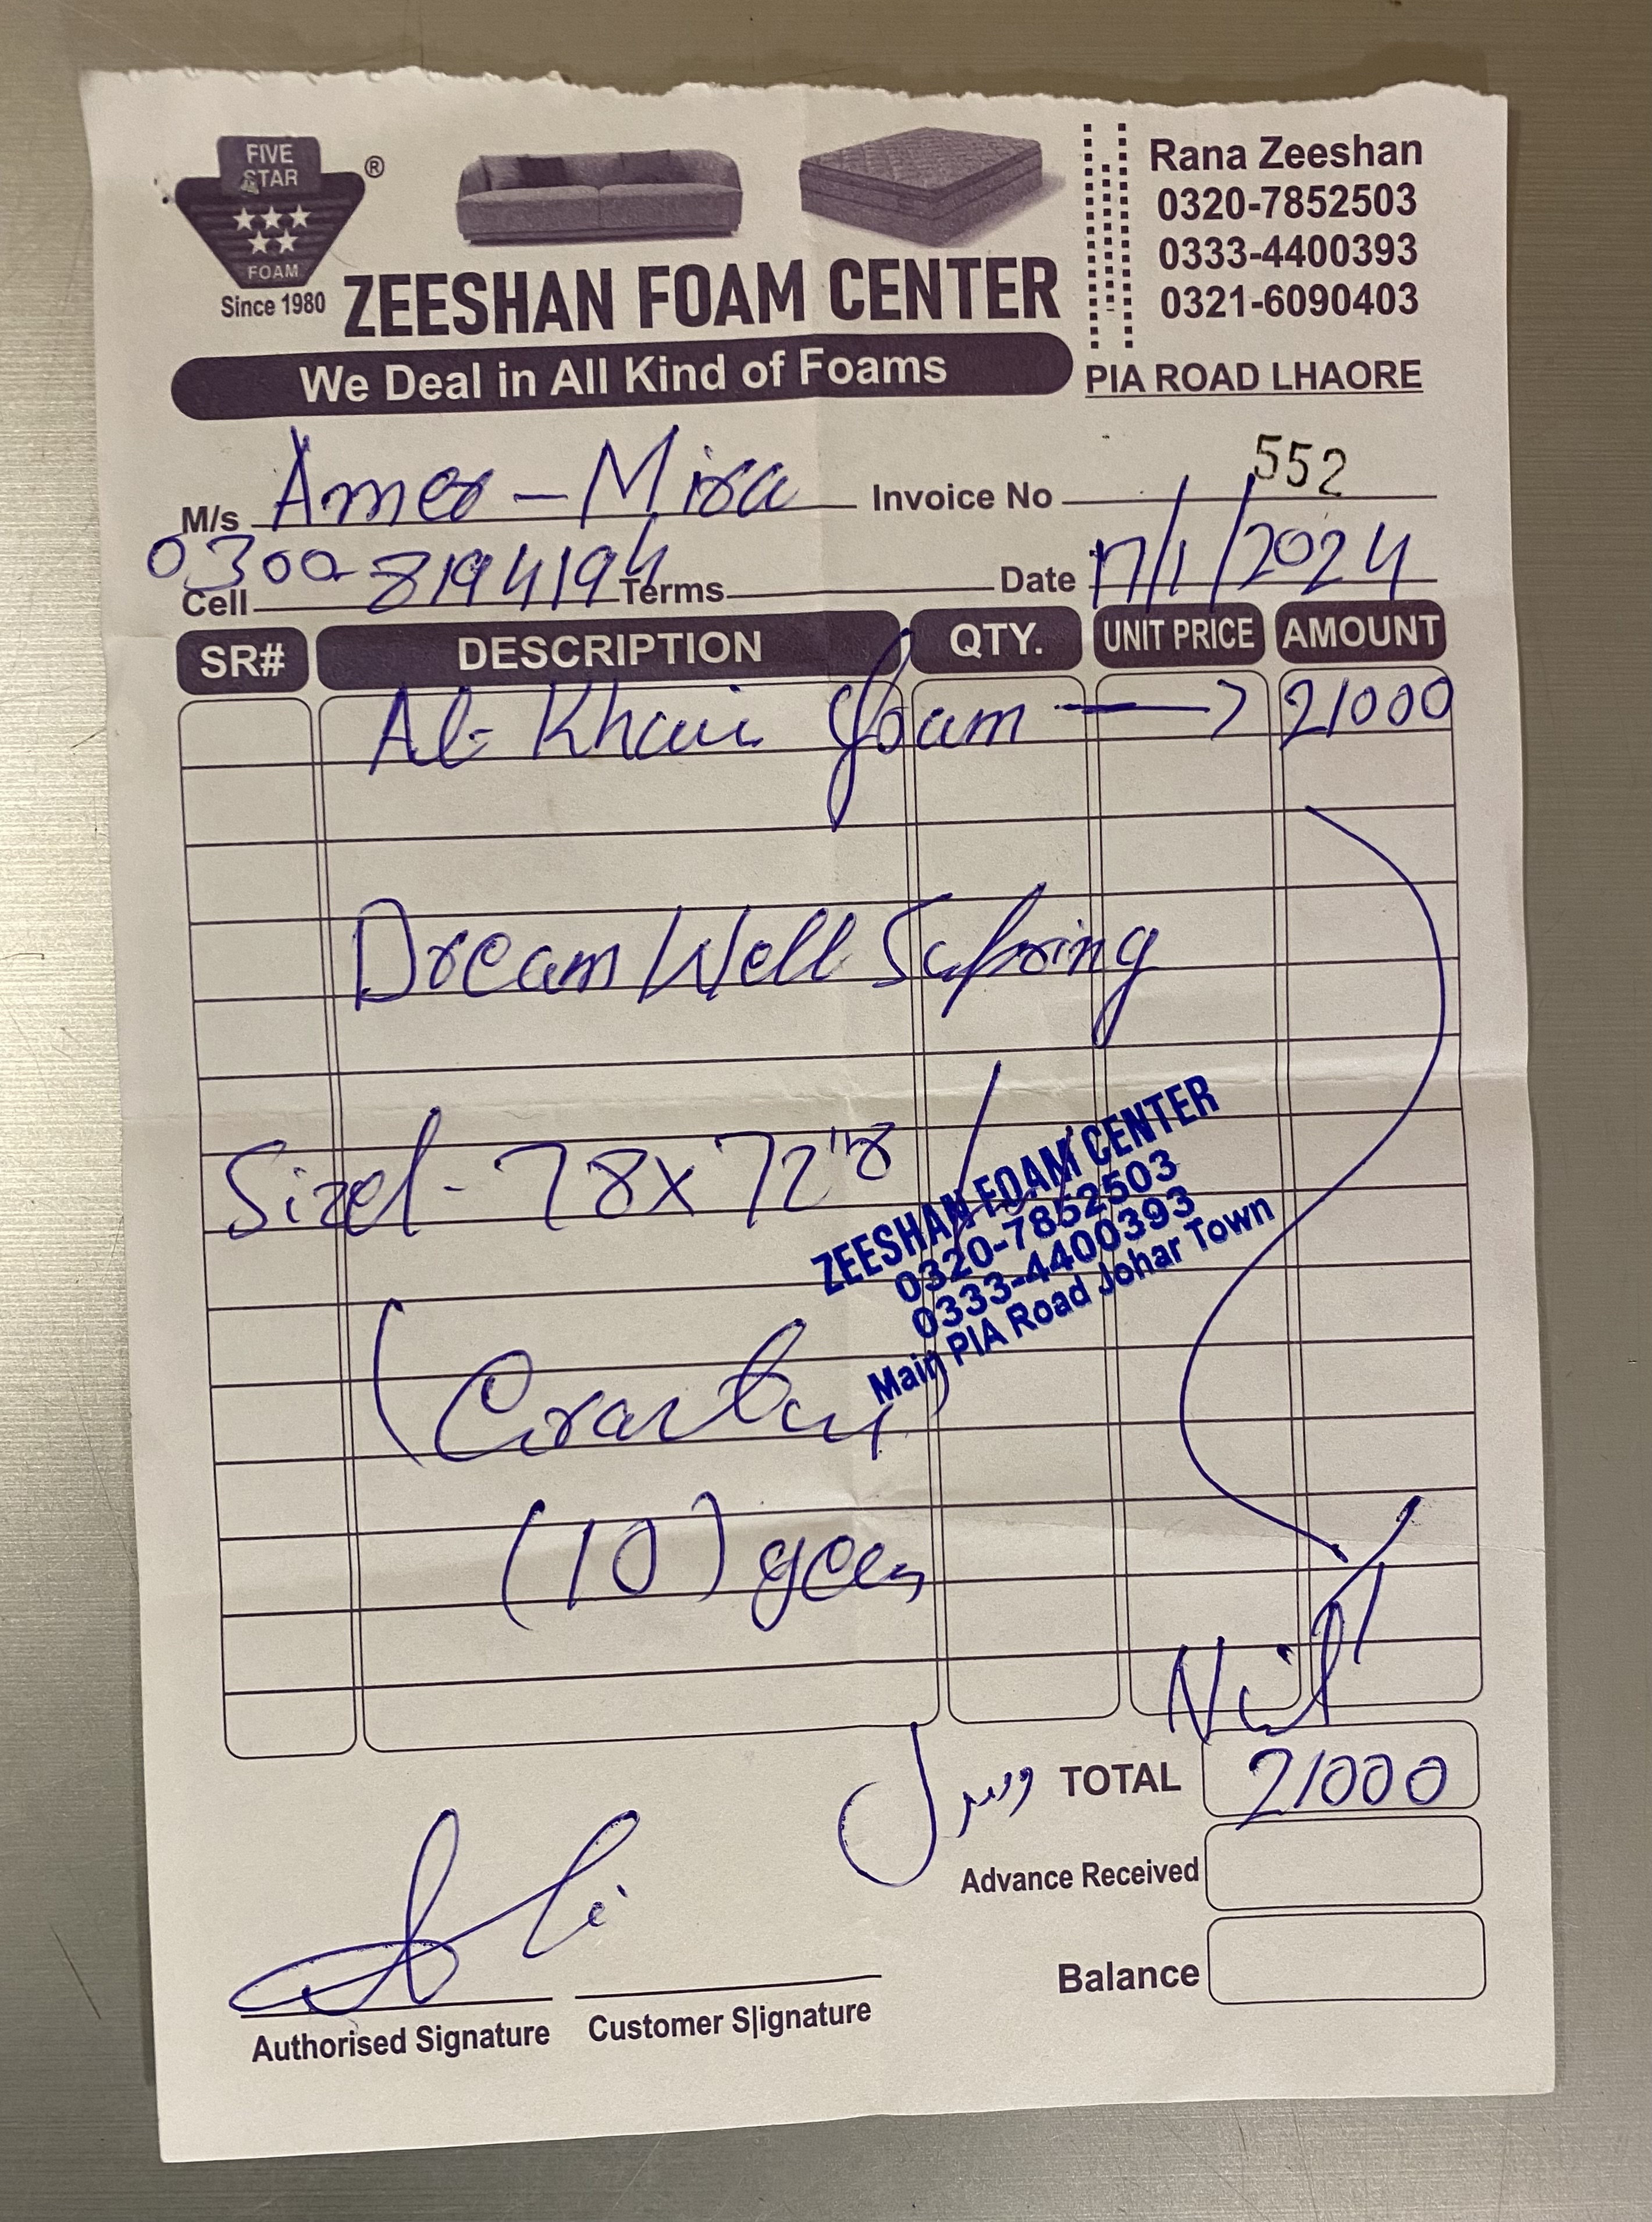 FIVE
STAR
FOAM
®
Since 1980
ZEESHAN FOAM CENTER
We Deal in All Kind of Foams
Rana Zeeshan
0320-7852503
0333-4400393
0321-6090403
PIA ROAD LHAORE
M/s Amer - Mirza Invoice No 552
Cell 0300-8194194 Terms Date 17/1/2024
SR# DESCRIPTION QTY. UNIT PRICE AMOUNT
Al-Khair foam → 21000
Dream Well Spring
Size - 78x72"
ZEESHAN FOAM CENTER
0320-7852503
0333-4400393
Main PIA Road Johar Town
(10) year
Nil
وصول TOTAL 21000
Advance Received
Balance
Authorised Signature Customer S|ignature